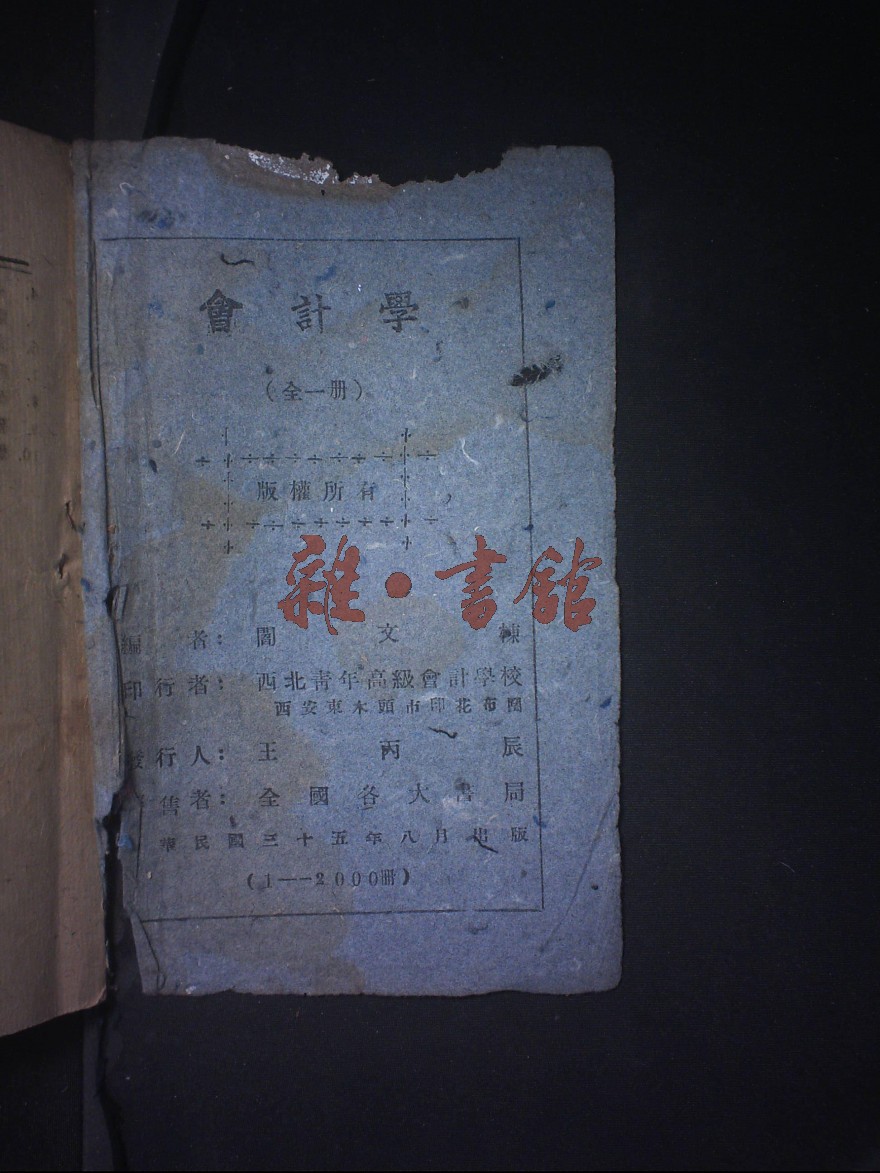 會計學
(全一册)
版權所有
雜·書館
編者：閻文棟
印行者：西北青年高級會計學校
西安東木頭市印花布園
發行人：王丙辰
售者：全國各大書局
華民國三十五年八月出版
(1——2000册)